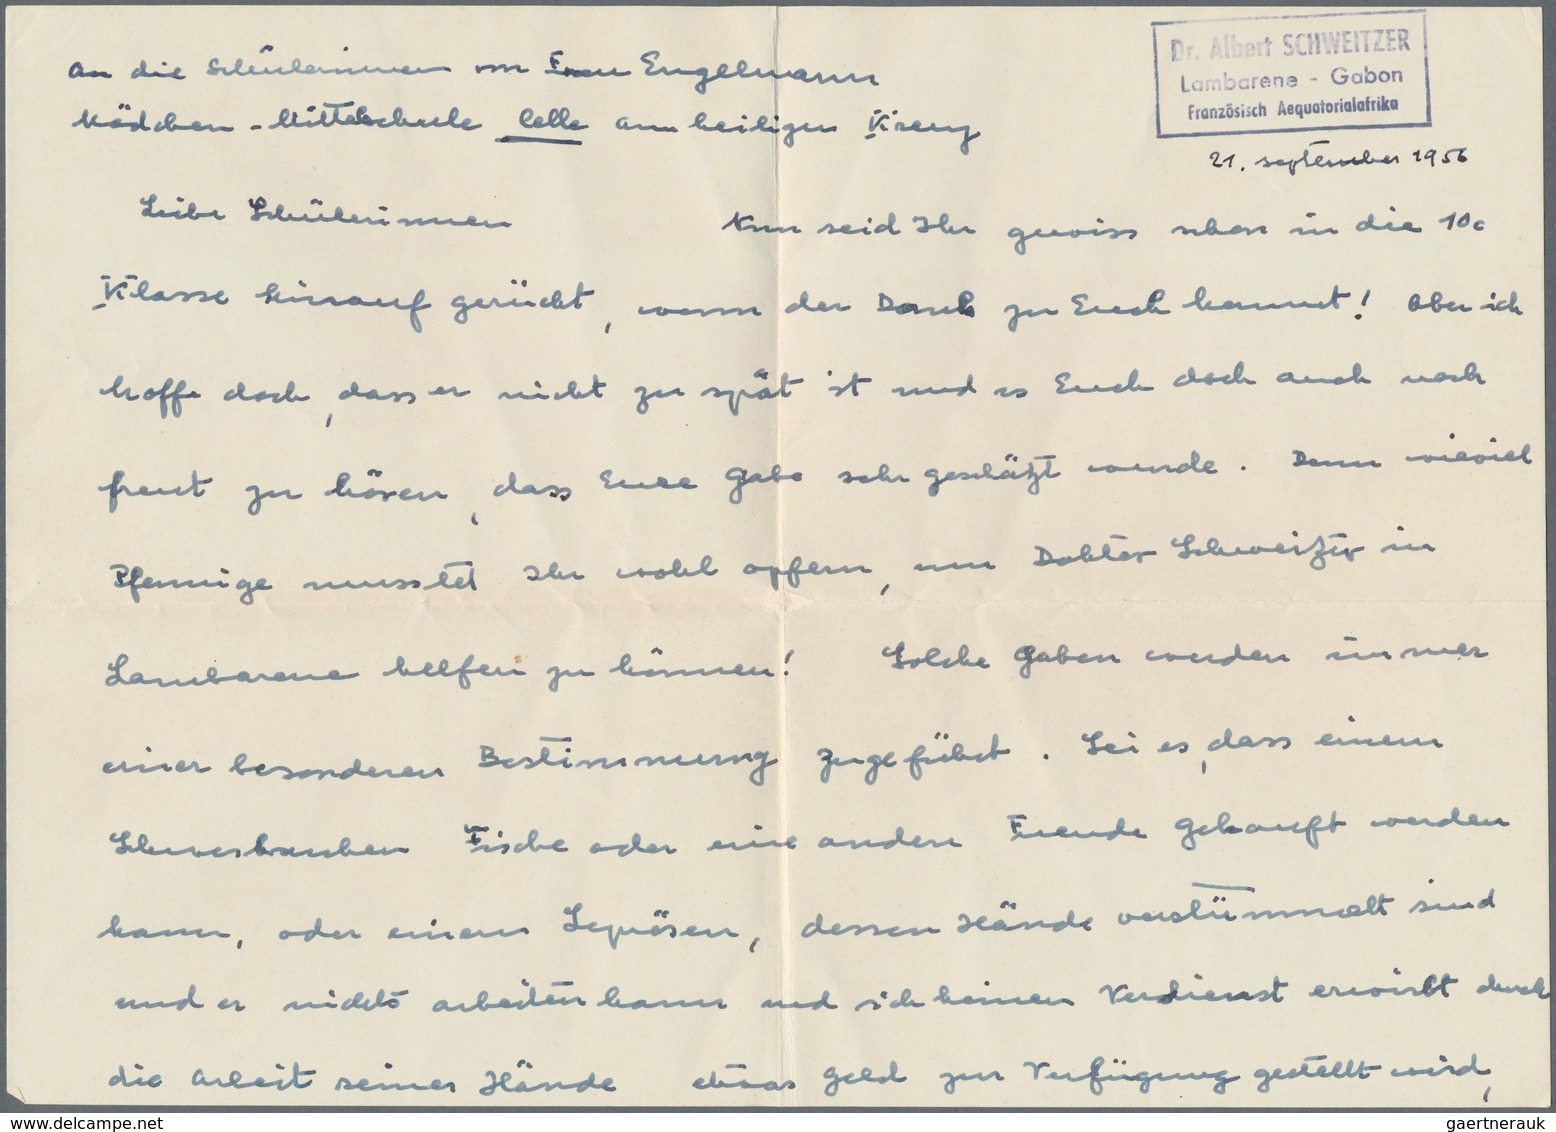 Dr. Albert SCHWEITZER
Lambarene - Gabon
Französisch Aequatorialafrika
21. september 1956
An die Schülerinnen von Frau Engelmann
Mädchen-Mittelschule Celle am heiligen Kreuz
Liebe Schülerinnen Nun seid Ihr gewiss schon in die 10e
Klasse hinauf gerückt, wenn der Dank zu Euch kommt! Aber ich
hoffe doch, dass er nicht zu spät ist und es Euch doch auch noch
freut zu hören, dass Eure Gabe sehr geschätzt wurde. Denn wieviel
Pfennige musstet Ihr wohl opfern, um Doktor Schweitzer in
Lambarene helfen zu können! Solche Gaben werden immer
einer besonderen Bestimmung zugeführt. Sei es, dass einem
Schwerkranken Fische oder eine andere Freude gekauft werden
kann, oder einem Leprösen, dessen Hände verstümmelt sind
und er nichts arbeiten kann und sich keinen Verdienst erwirbt durch
die Arbeit seiner Hände etwas Geld zur Verfügung gestellt wird,
gaertnerauk @ www.delcampe.net